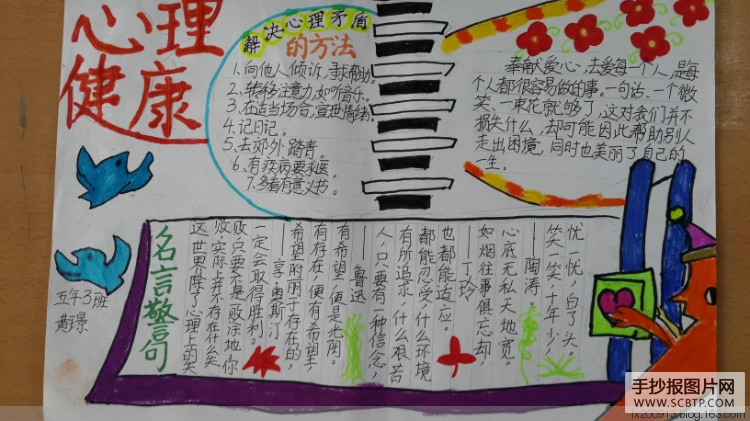 心理
健康
解决心理矛盾
的方法
1.向他人倾诉,寻求帮助。
2、转移注意力,如听音乐。
3、在适当场合,宣泄情绪。
4.记日记。
5、去郊外踏青。
6、有疾病要求医。
7.多看有意义书。
奉献爱心,去爱每一个人,是每
个人都很容易做的事。一句话、一个微
笑、一束花就够了,这对我们并不
损失什么,却可能因此帮助别人
走出困境,同时也美丽了自己的
一生。
五年3班
黄璟
名言警句
忧一忧,白了头,
笑一笑,十年少。
——陶涛
心底无私天地宽。
如烟往事俱忘却,
——丁玲
也都能适应。
都能忍受,什么环境
有所追求,什么艰苦
人,只要有一种信念,
——鲁迅
有希望,便是光阴。
有存在,便有希望,
希望附丽于存在的,
——享·奥斯汀
一定会取得胜利。
败点,只要不是一败涂地,你
败,实际上并不存在什么失
这世界除了心理上的失
手抄报图片网
WWW.SCBTP.COM
fx200913.blog.163.com